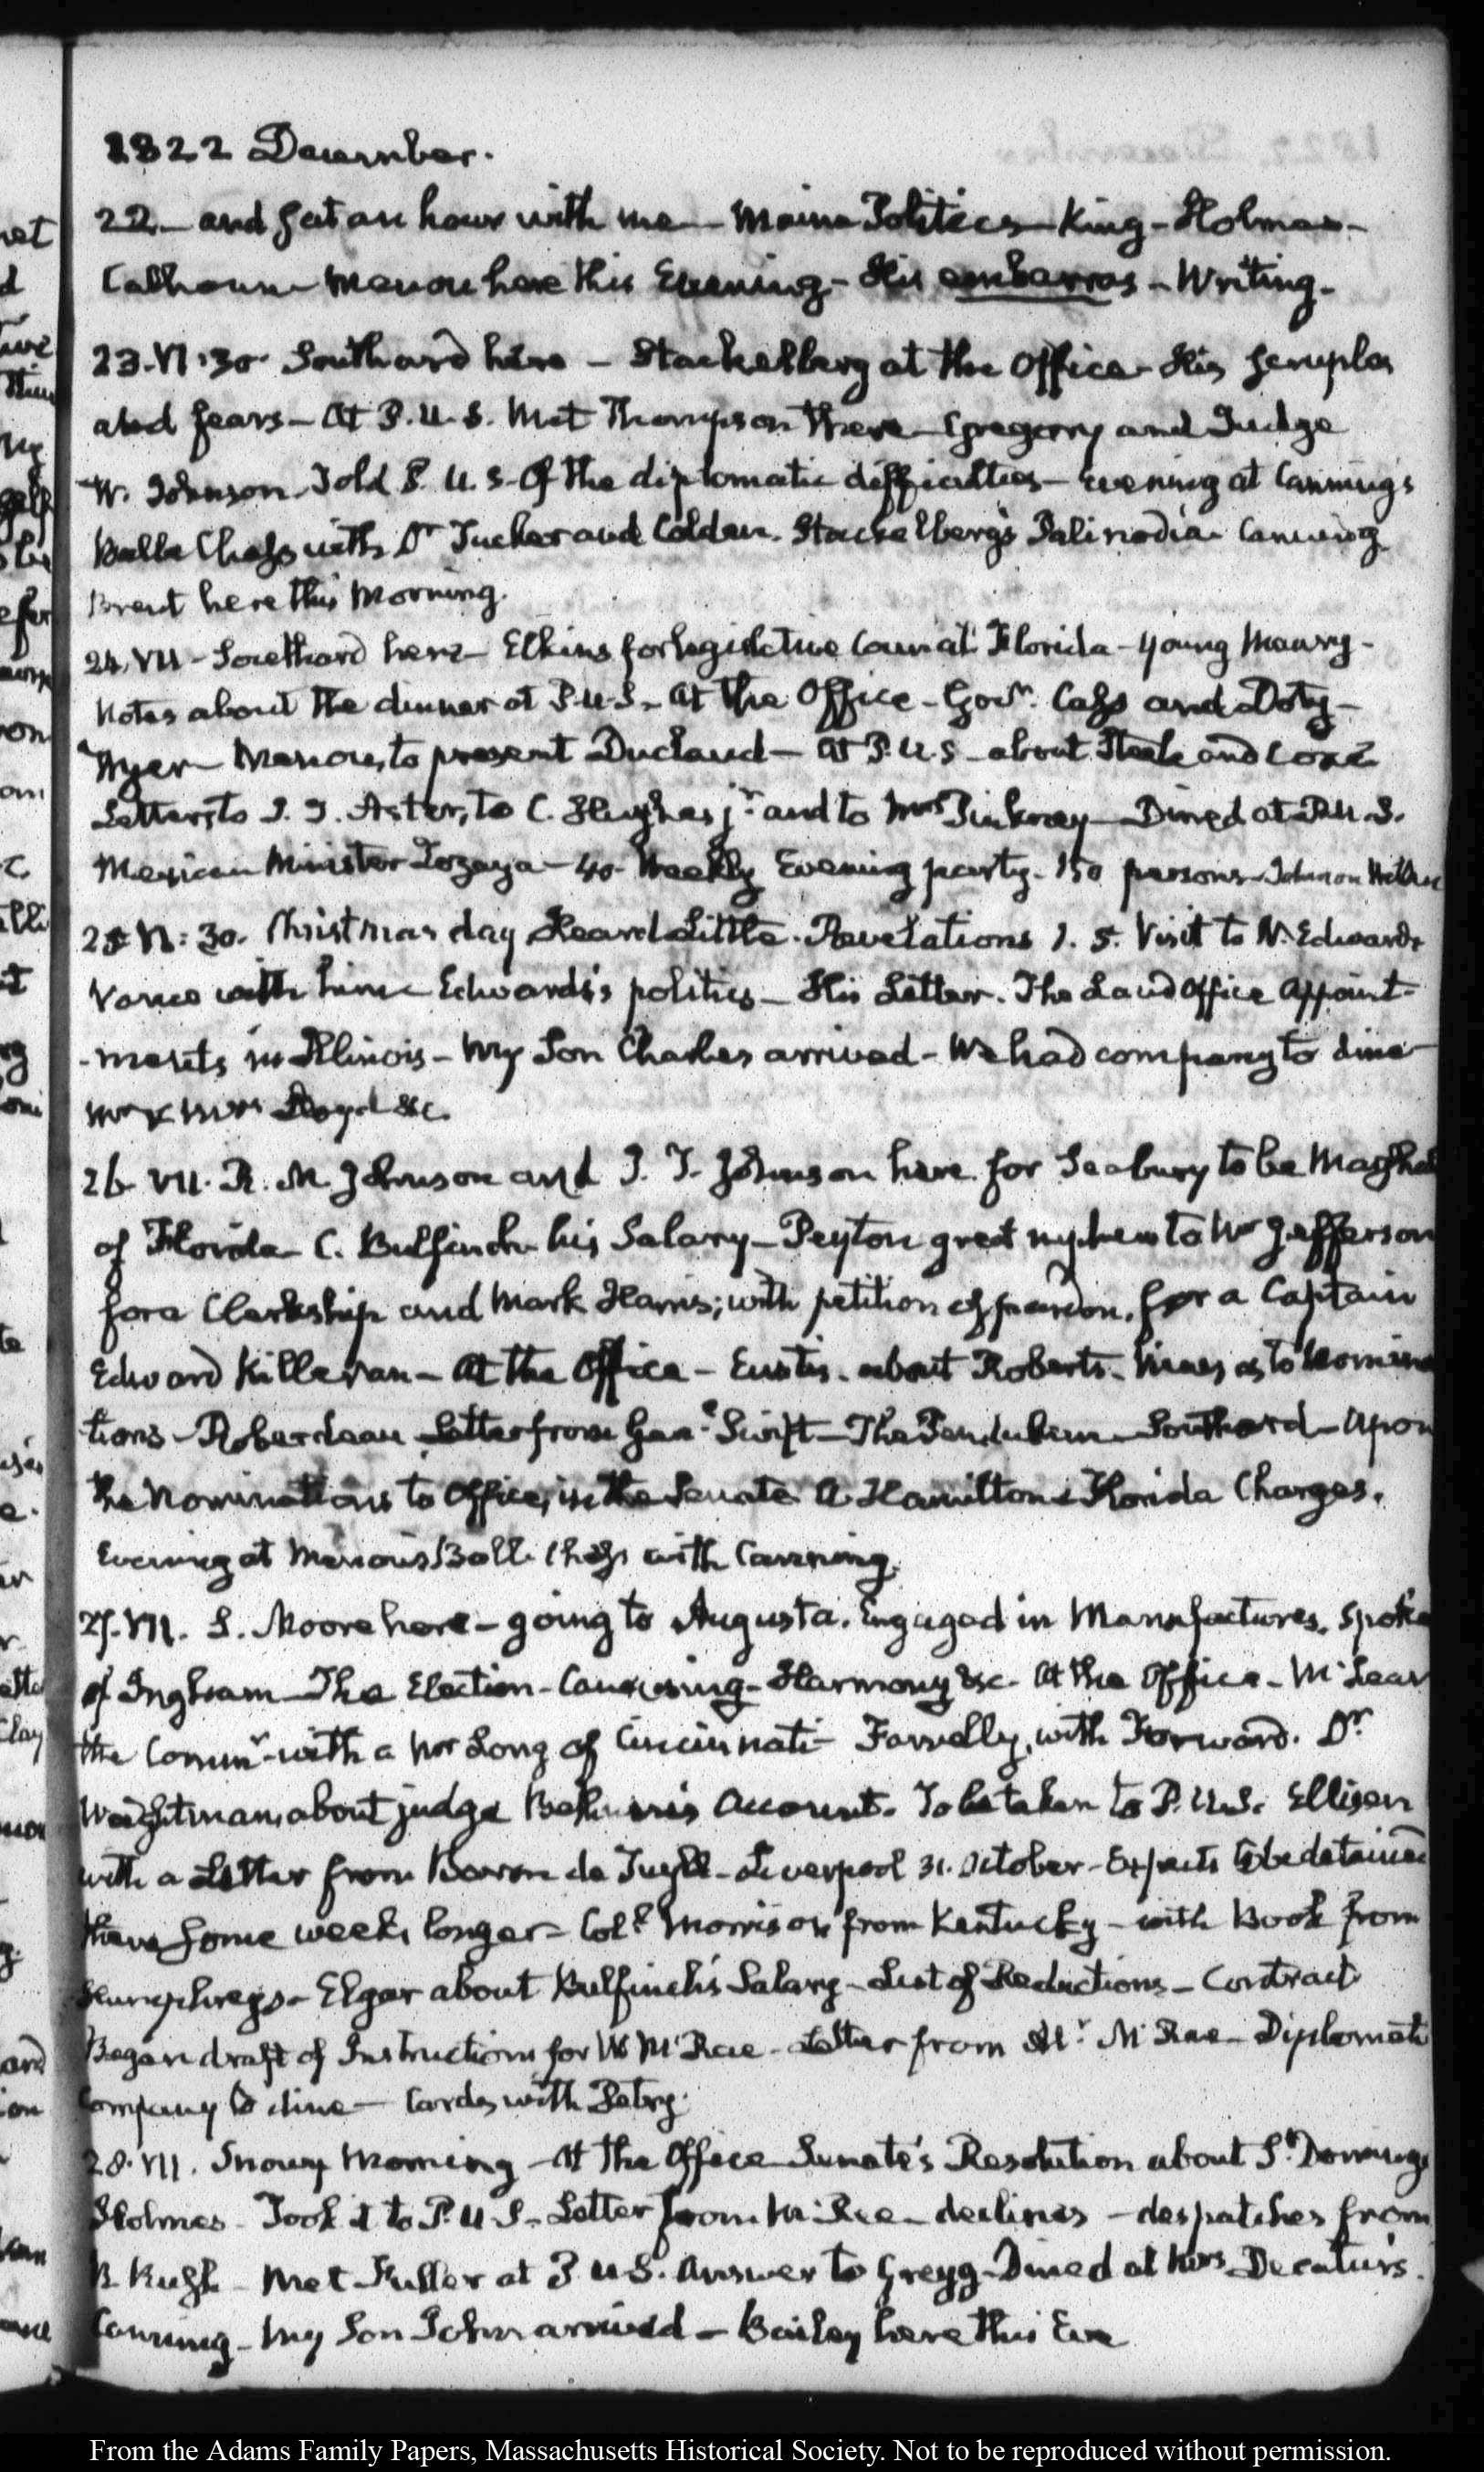 1822 December.
22.— and sat an hour with me — Maine Politics — King — Holmes —
Calhoun — Menou here this Evening — His embarras — Writing.
23. VI:30. Southard here — Stackelberg at the Office — His scruples
and fears — At P.U.S. Met Thompson there — Gregory and Judge
W. Johnson — Told P.U.S. of the diplomatic difficulties — Evening at Canning's
Ball Chess with Dr Tucker and Colden. Stackelberg's Palinodia Canning
Brent here this Morning.
24. VII — Southard here — Elkins for legislative Council Florida — Young Maury —
Notes about the dinner at P.U.S. — At the Office — Govr. Cass and Doty —
Wyer — Menou, to present Duclaud — At P.U.S. — about Steele and Coxe
Letters to J. J. Astor, to C. Hughes jr. and to Mrs Pinkney — Dined at P.U.S.
Mexican Minister Zozaya — 40. Weekly Evening party. 150 persons — Johnson
25. VI:30. Christmas day Heard Little. Revelations 1. 5. Visit to N. Edwards
with him — Edwards's politics — His Letter. The Land Office Appoint-
-ments in Illinois — My Son Charles arrived — We had company to dine —
Mr & Mrs Lloyd &c.
26. VII. R. M. Johnson and J. T. Johnson here for Seabury to be Marshal
of Florida — C. Bulfinch his Salary — Peyton great nephew to Mr Jefferson
for a Clerkship and Mark Harris; with petition of pardon, for a Captain
Edward Killeran — At the Office — Eustis. about Roberts. Views as to Nomina
tions — Roberdeau Letter from Genl. Swift — The Pendulum — Southard — Upon
the Nominations to Office, in the Senate A Hamilton's Florida Charges.
Evening at Menou's Ball. Chess with Canning.
27. VII. S. Moore here — going to Augusta. Engaged in Manufactures. Spoke
of Ingham — The Election — Caucusing — Harmony &c. At the Office — McLean
the Commr. with a Mr Long of Cincinnati — Farrelly, with Forward. Dr
Weightman, about judge Account. To be taken to P.U.S. Ellisen
with a Letter from Baron de Tuyll — Liverpool 31. October — Expects to be detained
there some weeks longer — Coll. Morrison from Kentucky — with Book from
Humphreys — Elgar about Bulfinch's Salary — List of Reductions — Contract
Began draft of Instructions for W McRae — Letter from Al: McRae — Diplomatic
Company to dine — Cards with Petry.
28. VII. Snowy Morning — At the Office — Senate's Resolution about St Domingo
Holmes — Took it to P.U.S. — Letter from McRae — declines — despatches from
R. Rush — Met Fuller at P.U.S. Answer to Gregg — Dined at Mrs Decatur's.
Canning — My Son John arrived — Bailey here this Eve
From the Adams Family Papers, Massachusetts Historical Society. Not to be reproduced without permission.